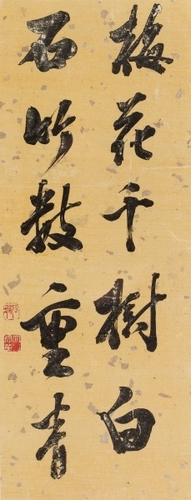 梅花千樹白
石竹數重青